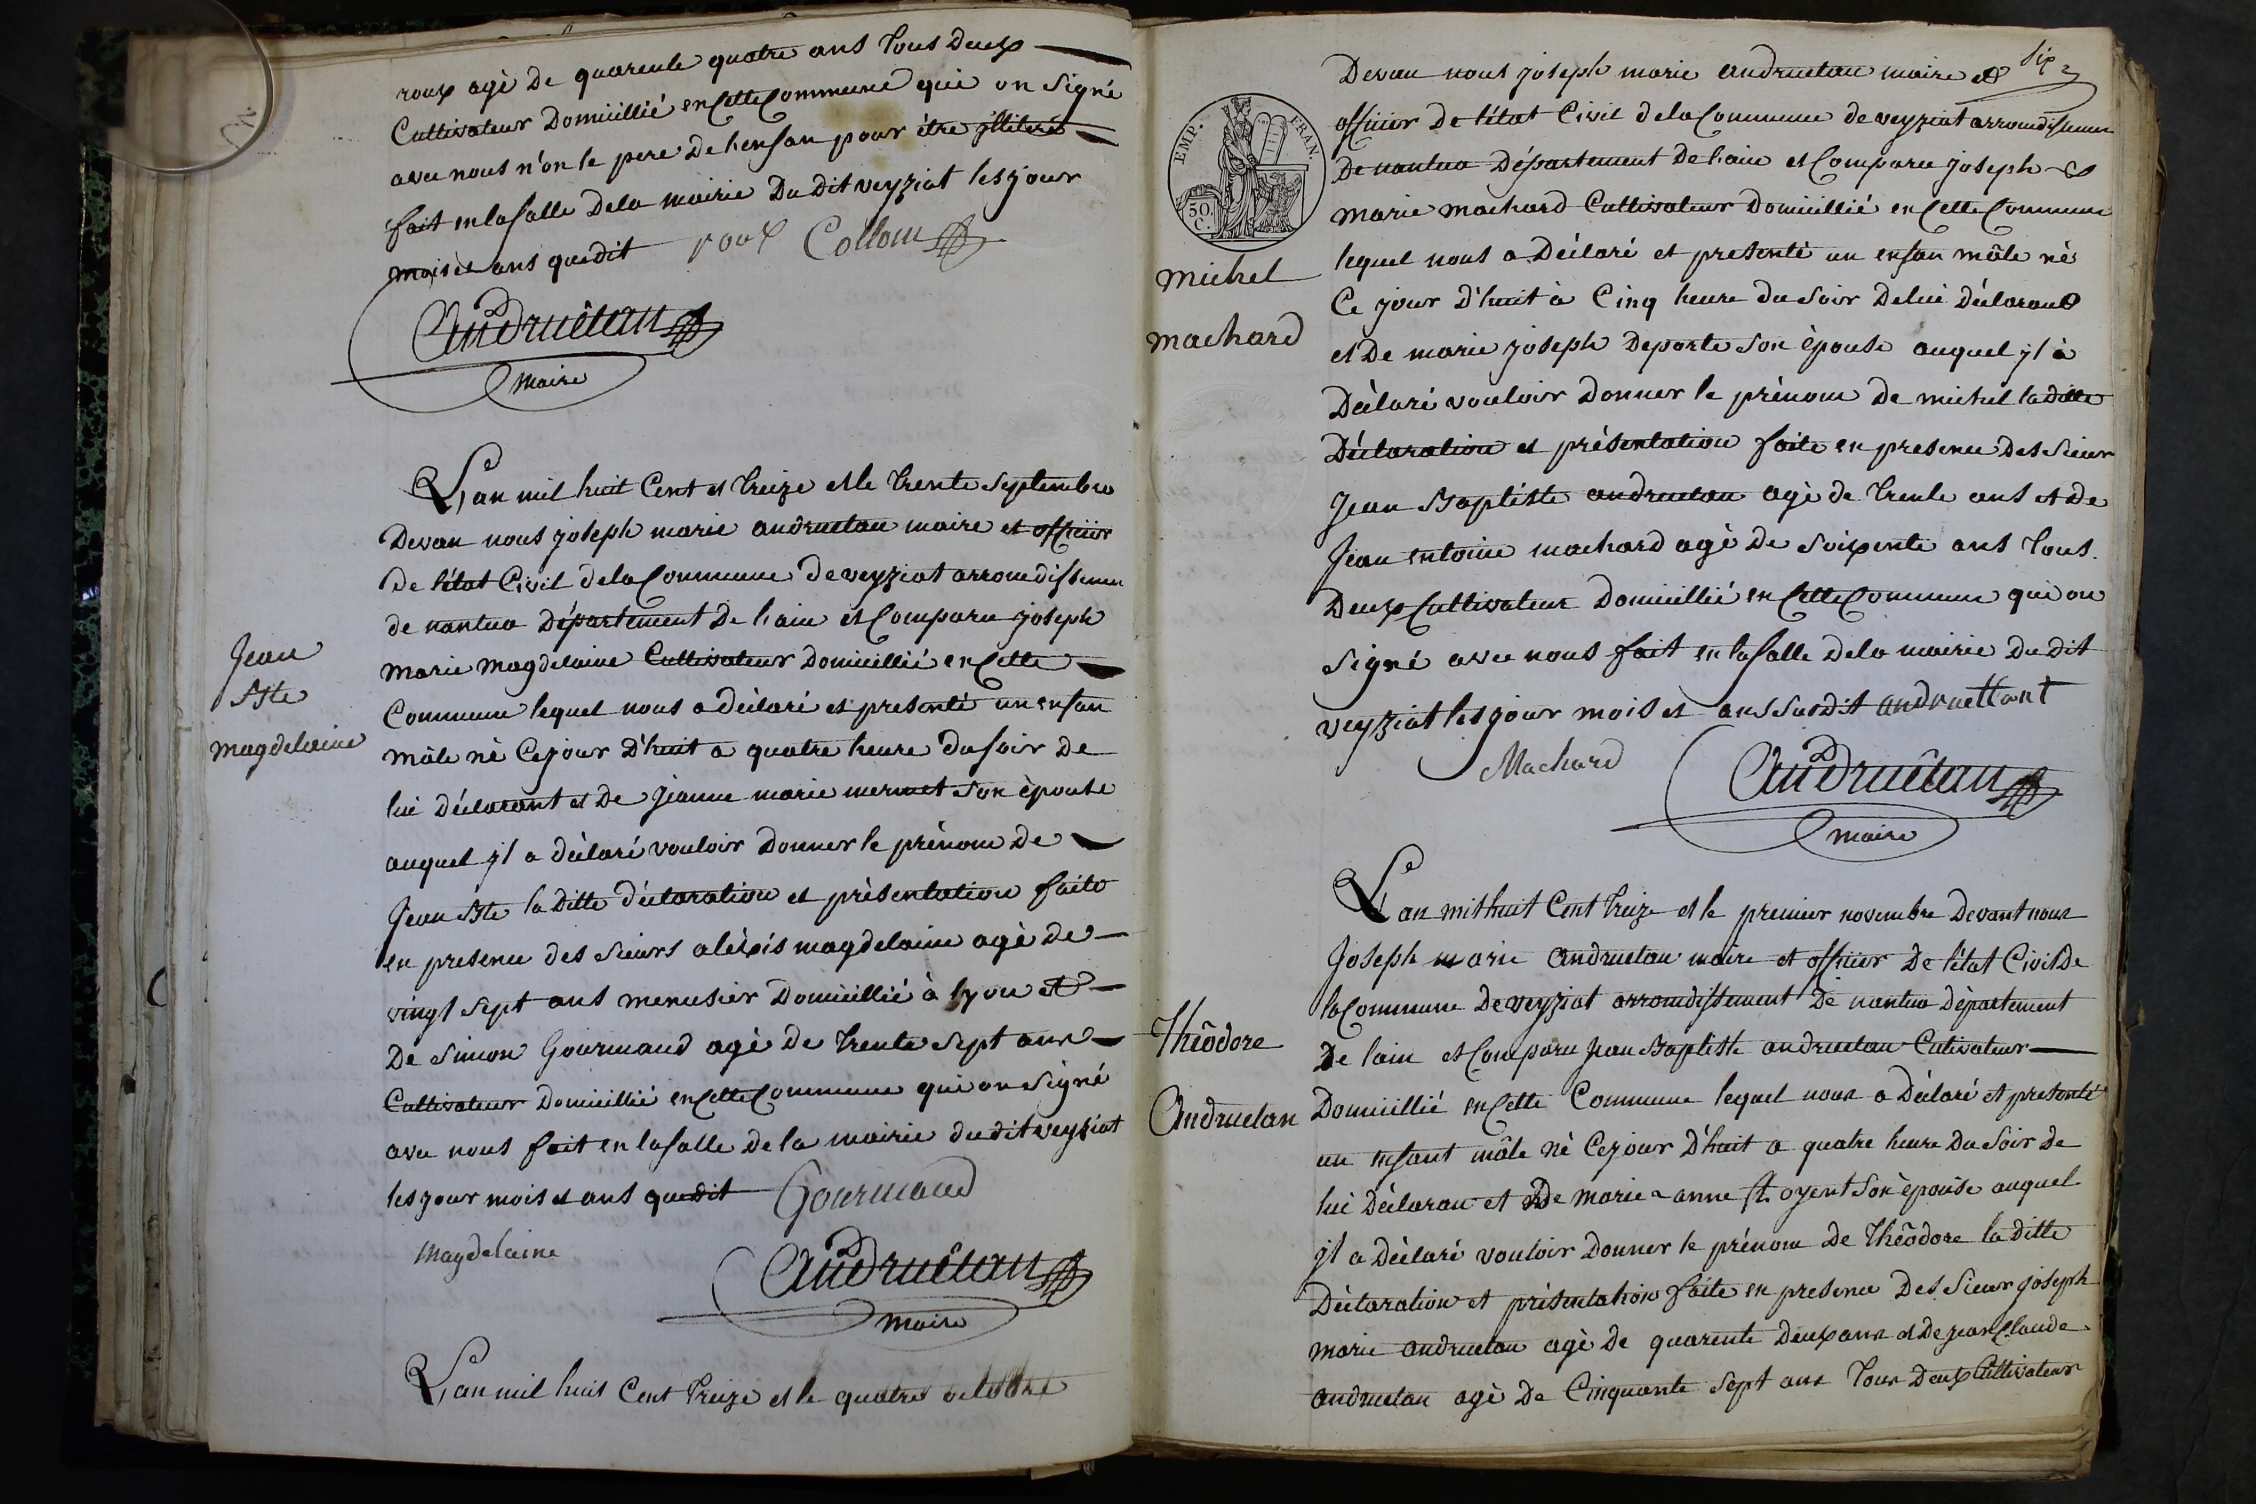 roux agè de quarente quatre ans tous deux
Cultivateur Domicillié en Cette Commune qui on signé
avec nous n'on le pere de l'enfan pour être illiteré
fait en la salle de la mairie du dit veyziat les jour
mois et ans que dit roux Collom
Andruêtan
maire
L'an mil huit Cent et treize et le trente septembre
Devan nous joseph marie andruetan maire et officier
De l'état Civil de la Commune de veyziat arrondissemen
de nantua Département De l'ain est Comparu joseph
marie magdelaine Cultivateur Domicillié en Cette
Commune lequel nous a déclaré et presenté un enfan
mâle nè Ce jour D'huit a quatre heure du soir de
lui déclarant et De jeanne marie mermet son èpouse
auquel jl a dèclaré vouloir donner le prènom De
Jean Bte la ditte déclaration et prèsentation faite
en presence des sieurs alèxis magdelaine agè de
vingt sept ans menusier Domicillié à lyon et
De Simon Gourmand agè de trente sept ans
Cultivateur Domicillié en Cette Commune qui on signé
avec nous fait en la salle de la mairie du dit veyziat
les jour mois et ans que dit Gourmand
Magdelaine
Andruêtan
maire
L'an mil huit Cent treize et le quatre octobre
Jean
Bte
magdelaine
six
Devan nous joseph marie andruetan maire et
officier De l'état Civil de la Commune de veyziat arrondissemen
De nantua Département De l'ain est Comparu joseph
marie machard Cultivateur Domicillié en Cette Commune
lequel nous a Déclaré et presenté un enfan mâle nè
Ce jour D'huit à Cinq heure du soir De lui déclarant
et De marie joseph Deporte son èpouse auquel jl à
Dèclaré vouloir Donner le prènom De michel la ditte
Déclaration et présentation faite en presence Des sieur
Jean Baptiste andruetan agè de trente ans et De
Jean entoine machard agè De soixente ans tous
Deux Cultivateur Domicillié en Cette Commune qui on
signé avec nous fait en la salle de la mairie Du dit
veyziat les jour mois et ans susdit andruettant
Machard
Andruêtan
maire
EMP. FRAN.
50.
C.
michel
machard
L'an mil huit Cent treize et le premier novembre Devant nous
Joseph marie andruetan maire et officier De l'état Civil De
la Commune De veyziat arrondissement De nantua département
De l'ain est Comparu Jean Baptiste andruetan Cutivateur
Domicillié en Cette Commune lequel nous a Dèclaré et presenté
un enfant mâle nè Ce jour D'huit a quatre heure Du soir de
lui Déclaran et De marie-anne St oyent son èpouse auquel
jl a Dèclaré vouloir Donner le prénom De Thêodore la ditte
Déclaration et présentation faite en presence Des sieur joseph
marie andruetan agè de quarente Deux ans et De jean Claude
andruetan agè De Cinquante sept ans tous Deux Cultivateur
Thêodore
Andruetan